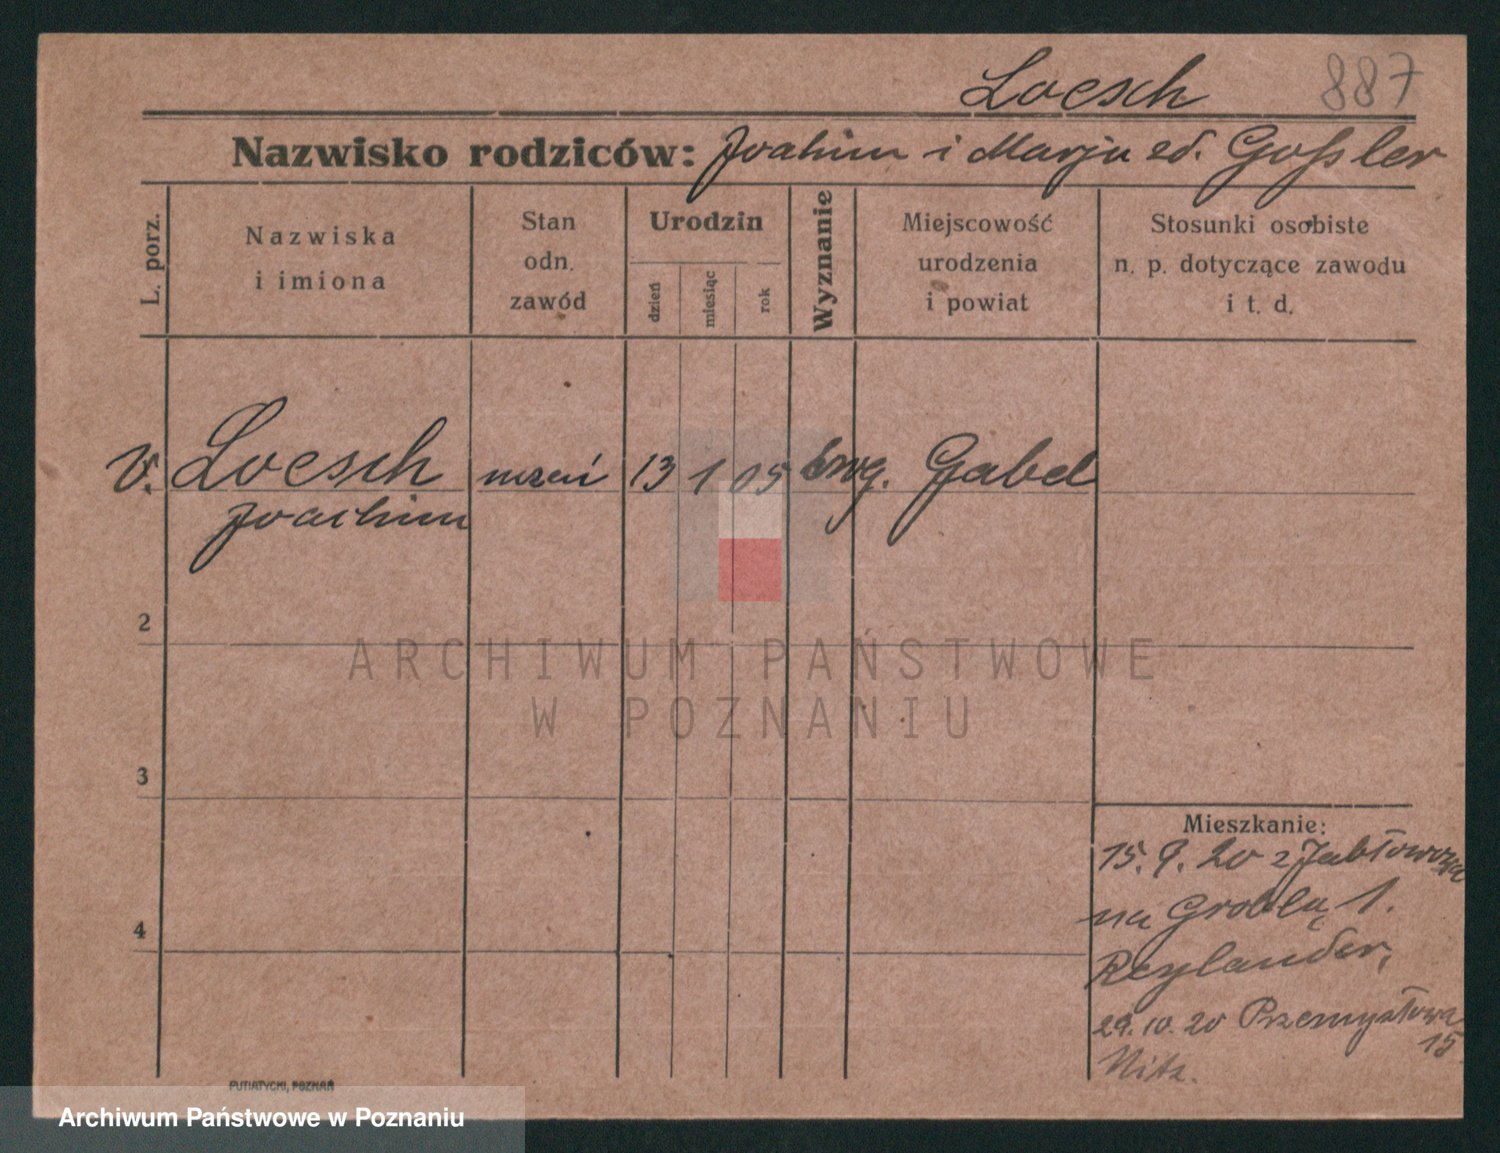 Loesch 887
Nazwisko rodziców: Joahim i Marja zd. Goßler
L. porz.
Nazwiska
i imiona
Stan
odn.
zawód
Urodzin
dzień
miesiąc
rok
Wyznanie
Miejscowość
urodzenia
i powiat
Stosunki osobiste
n. p. dotyczące zawodu
i t. d.
Loesch uczeń 13 1 05 ewg. Gabel
Joachim
2
3
4
ARCHIWUM PAŃSTWOWE
W POZNANIU
Mieszkanie:
15. 9. 20 z Jabłowowa
na Groblą 1.
Reylander,
29. 10. 20 Przemysłowa
15
Nitz.
PUTIATYCKI, POZNAŃ
Archiwum Państwowe w Poznaniu